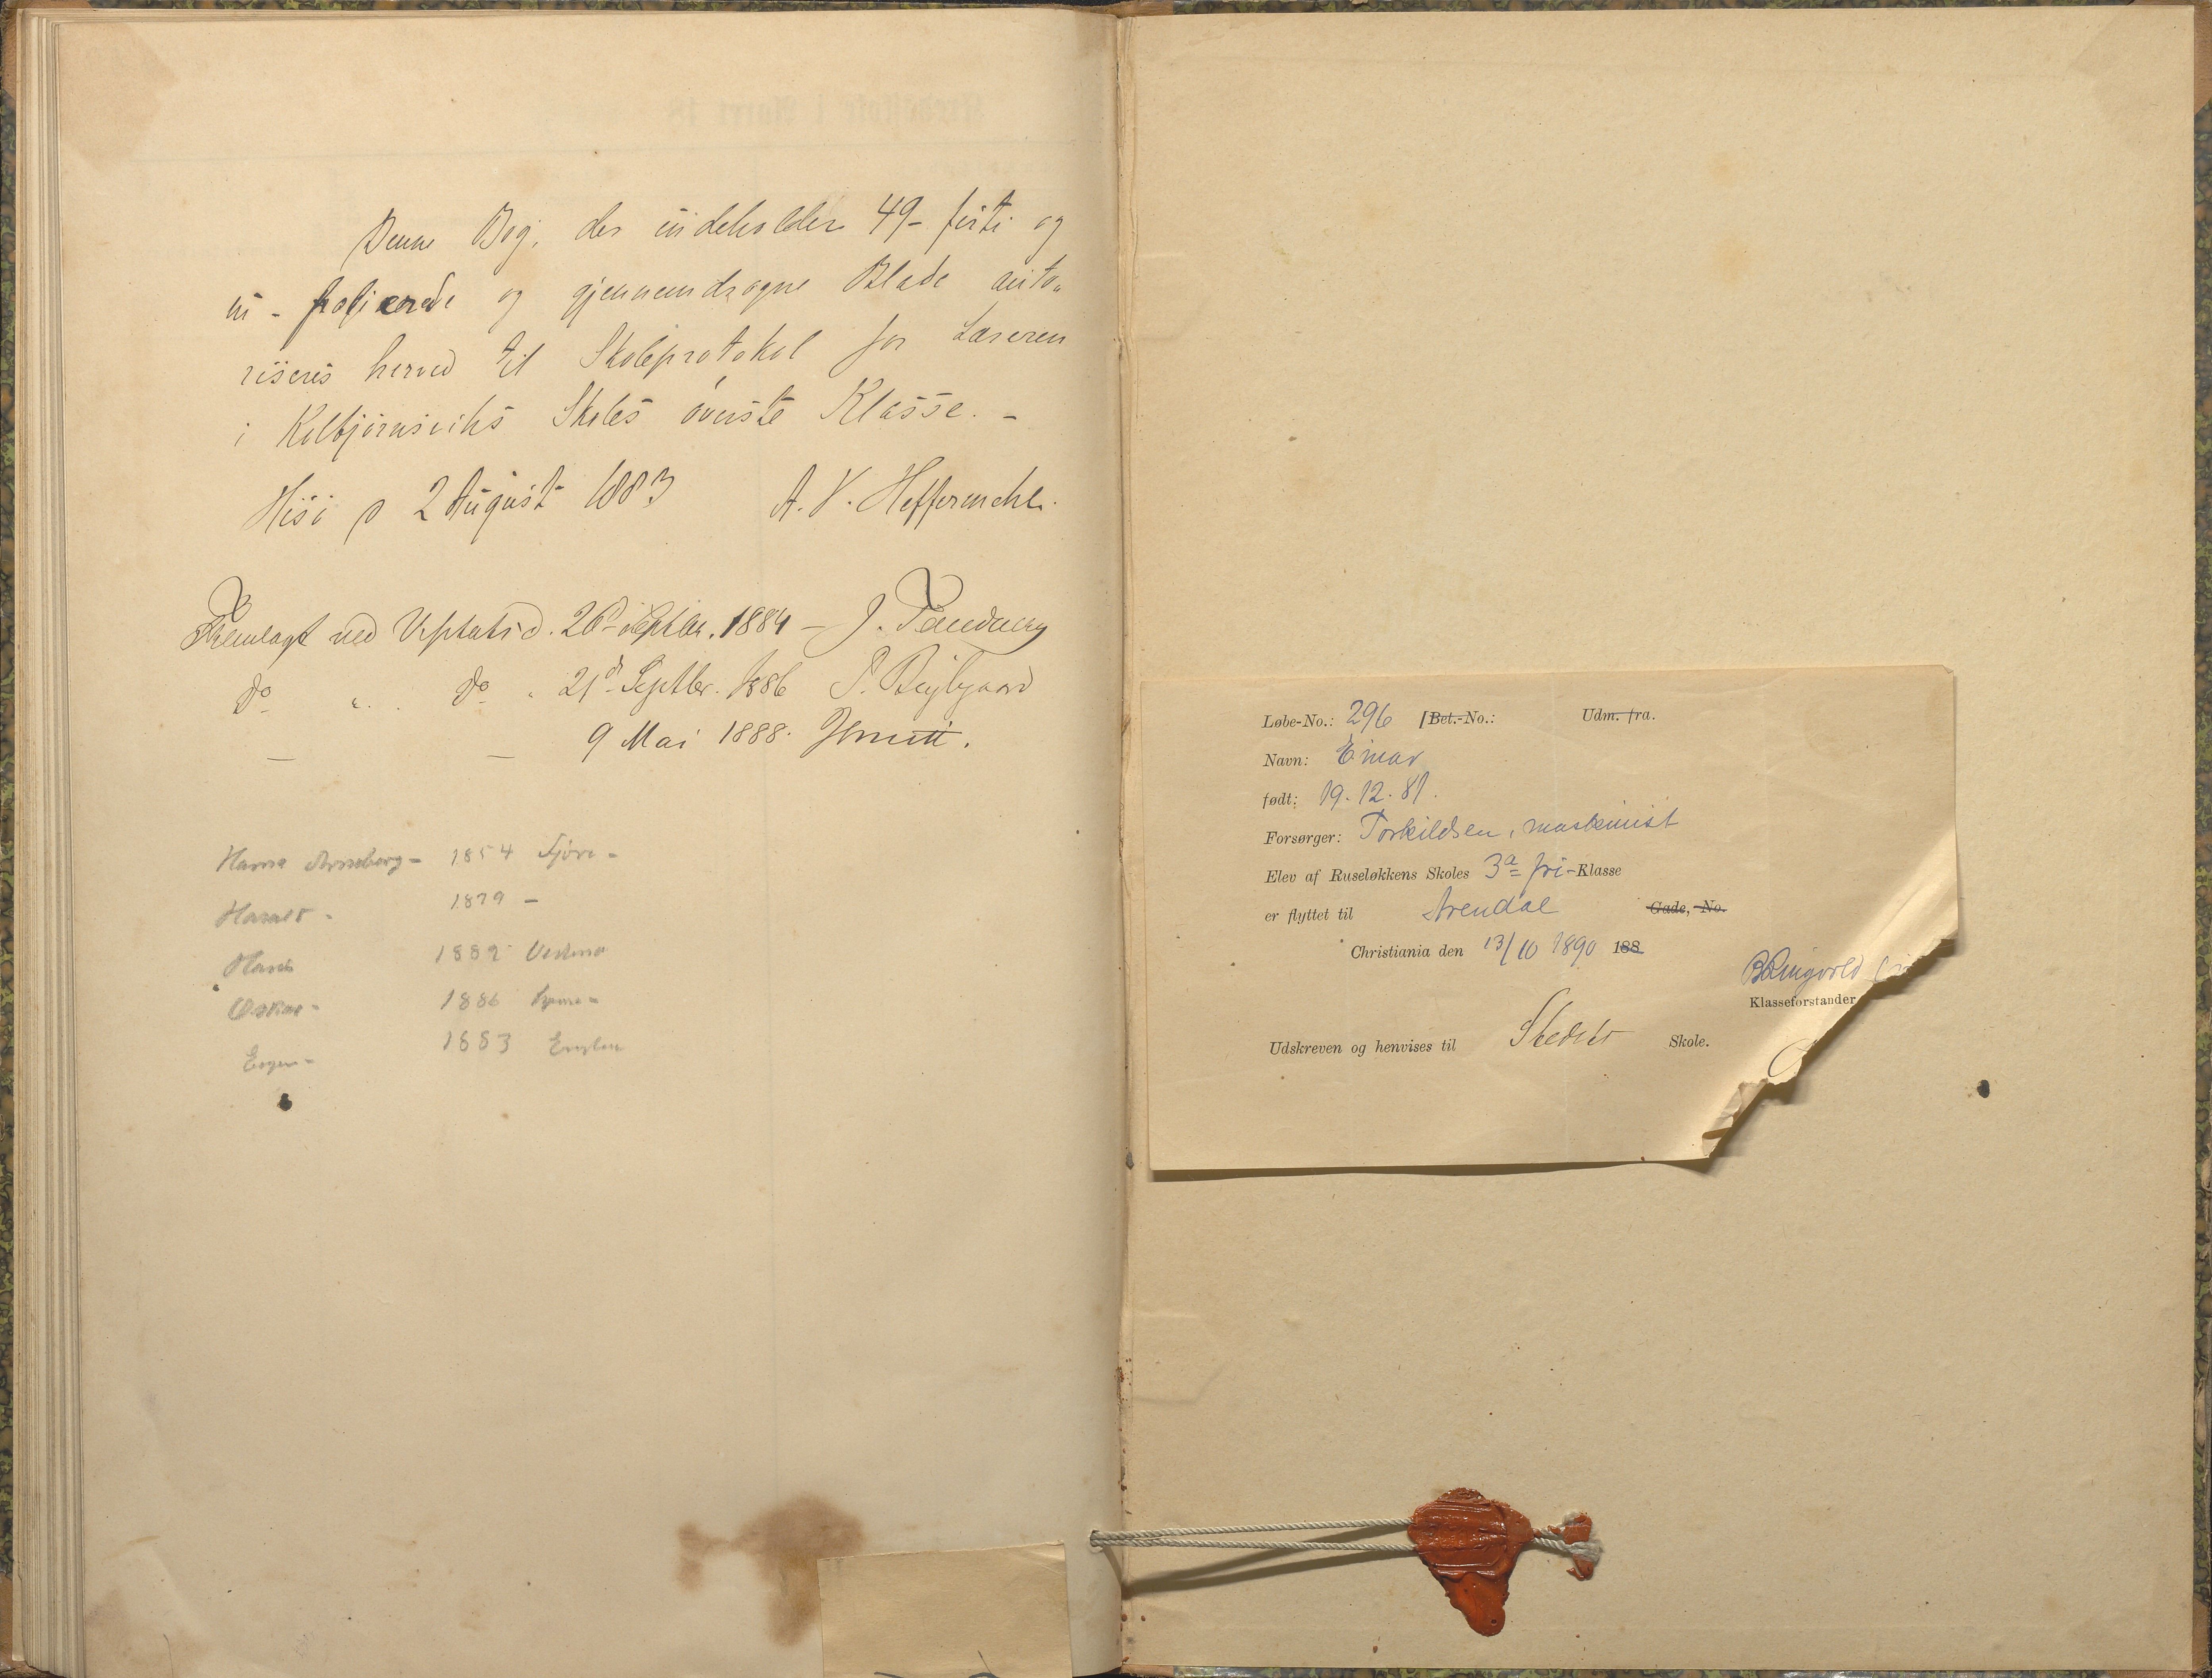 Denne Bog, der indeholder 49 - førti og
ni - folierede og gjennemdragne Blade auto-
riseres herved til Skoleprotokol for Læreren
i Kolbjørnsviks Skoles øverste Klasse. -
Hisø d 2 August 1883 A. V. Heffermehl.
Fremlagt ved Visitats d. 26d Septbr. 1884 - J.
do " do " 21d Septbr. 1886 P.
— — 9 Mai 1888.
Hanna Anneborg - 1854
Harald - 1879 -
Hans 1882
Oskar - 1886
1883
Løbe-No.: 296 [Bet.-No.: Udm. fra.
Navn: Einar
født: 19. 12. 81.
Forsørger: Torkildsen, maskinist
Elev af Ruseløkkens Skoles 3a fri-Klasse
er flyttet til Arendal Gade, No.
Christiania den 13/10 1890 188
B Ringvold
Klasseforstander
Udskreven og henvises til Stedets Skole.